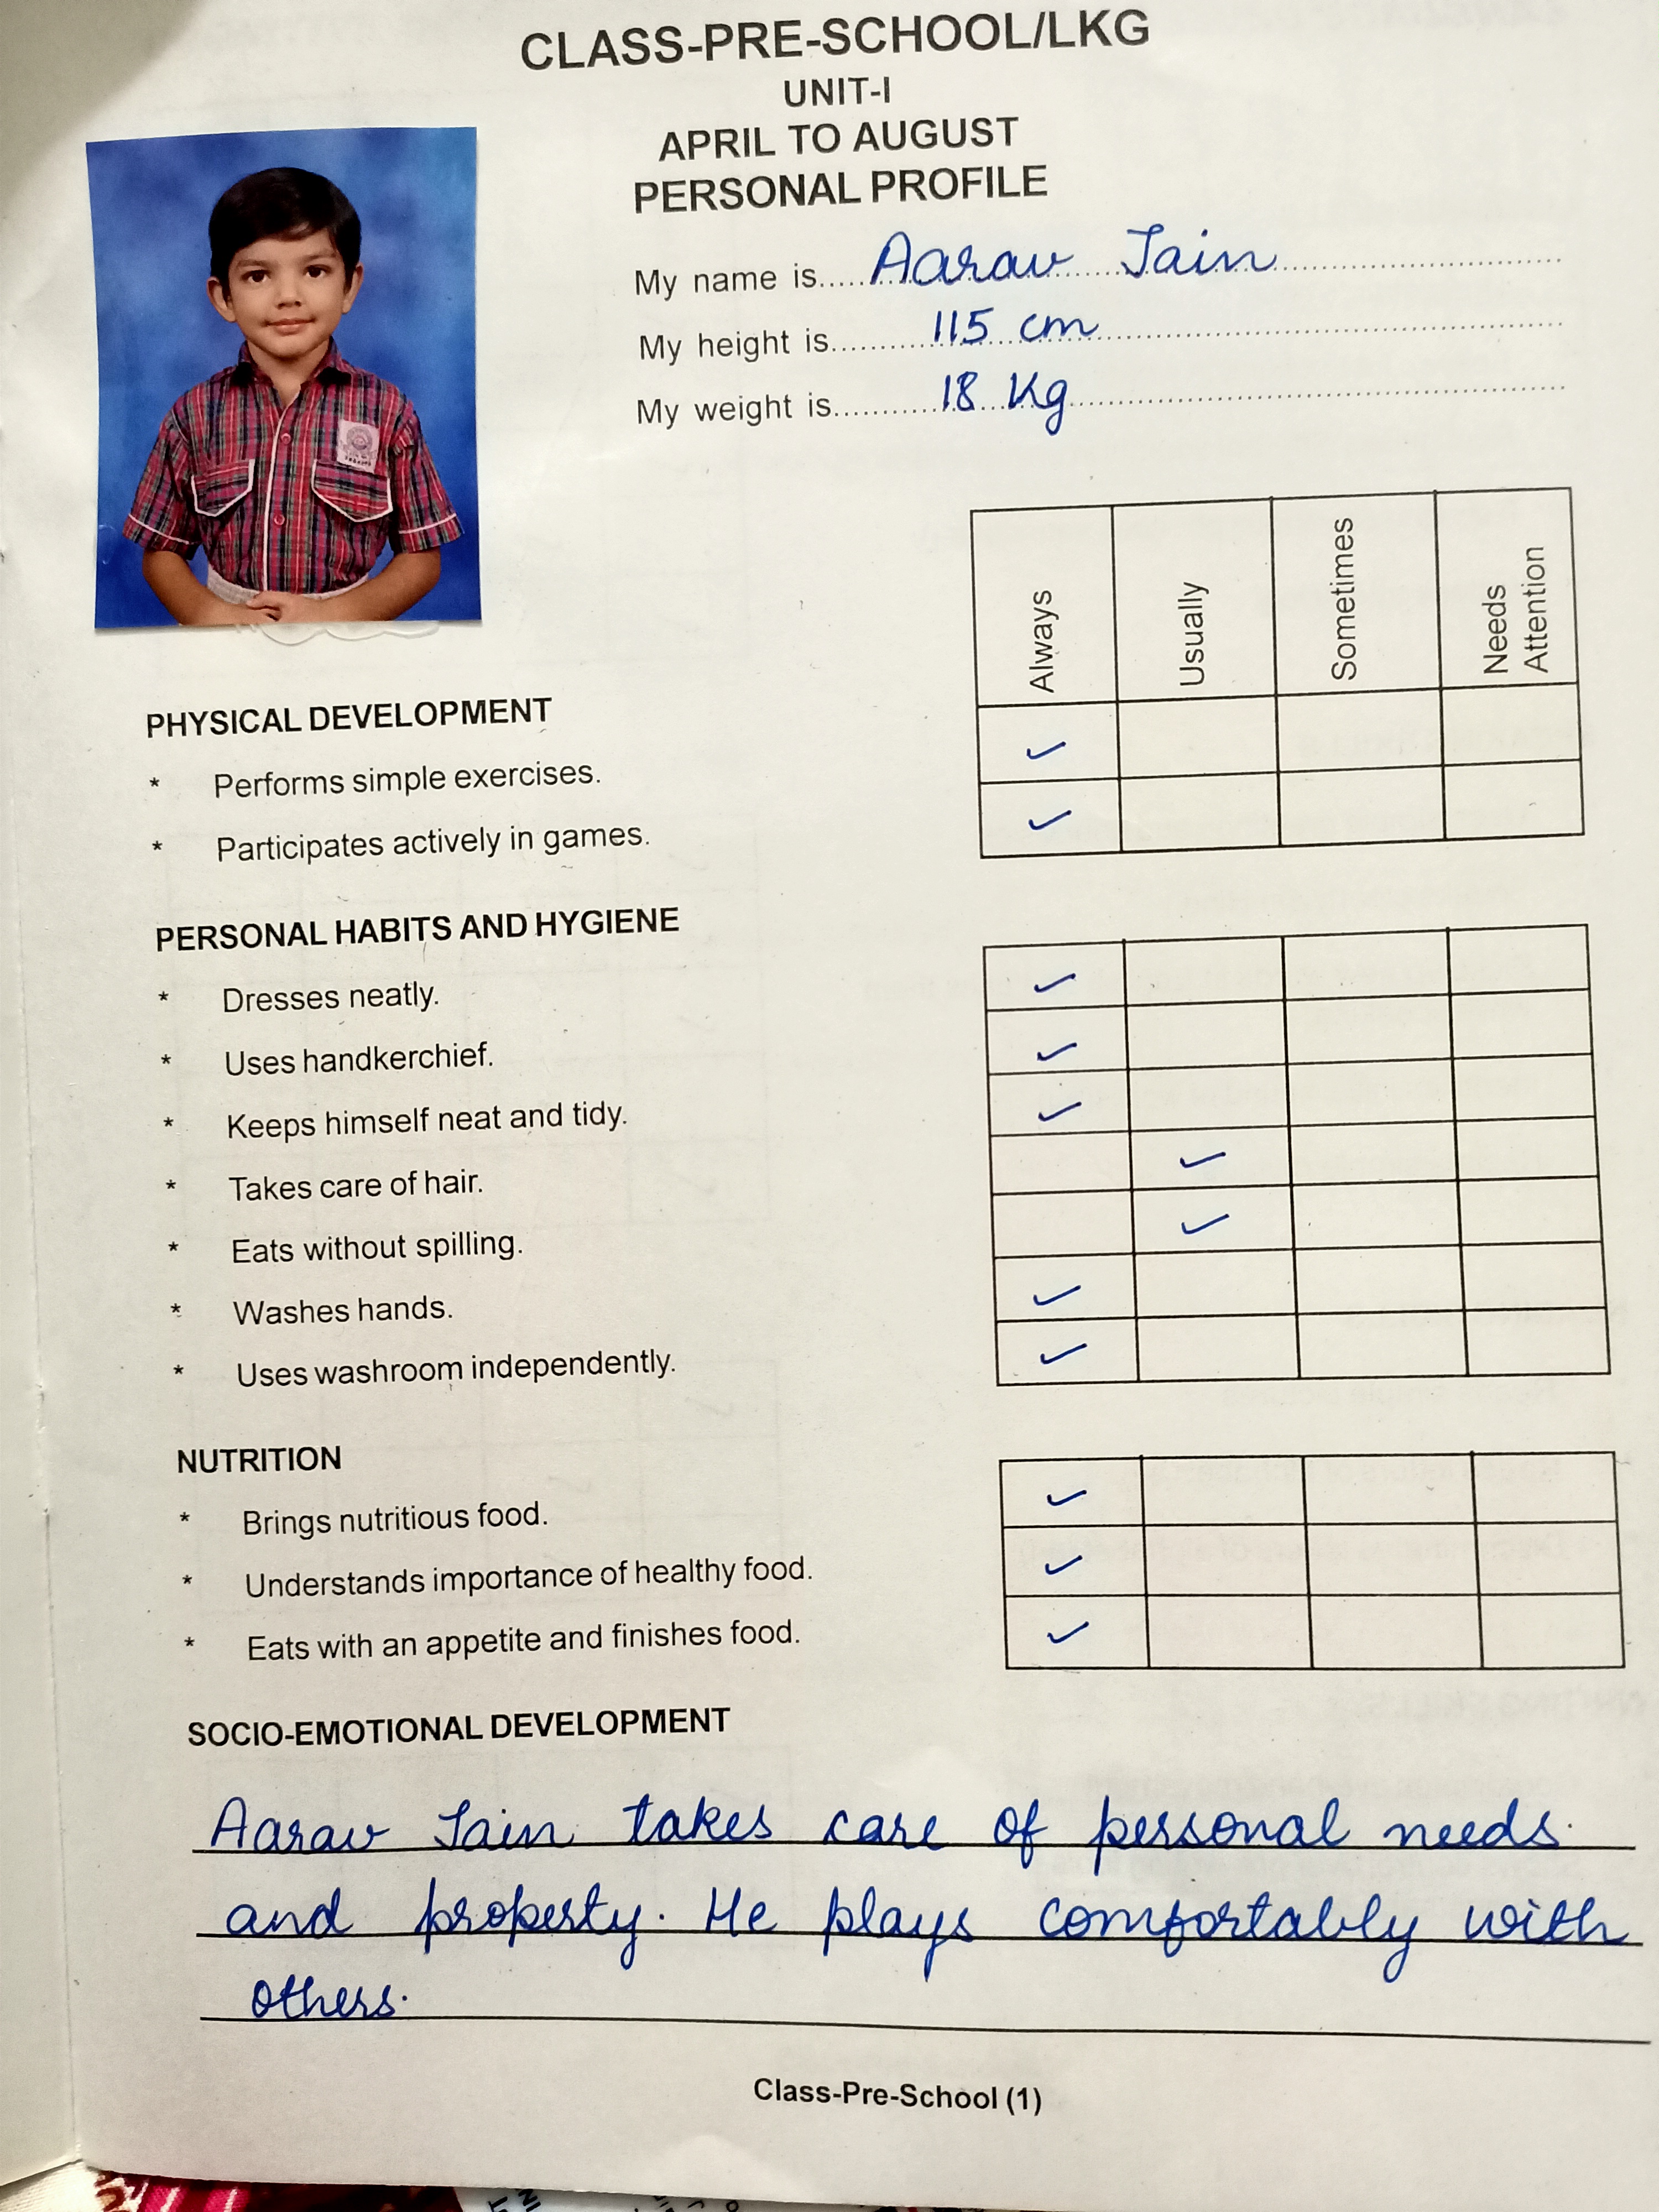 CLASS-PRE-SCHOOL/LKG
UNIT-I
APRIL TO AUGUST
PERSONAL PROFILE
My name is..... Aarav Jain
My height is..... 115 cm
My weight is..... 18 Kg
Always
Usually
Sometimes
Needs
Attention
PHYSICAL DEVELOPMENT
* Performs simple exercises. ✓
* Participates actively in games. ✓
PERSONAL HABITS AND HYGIENE
* Dresses neatly. ✓
* Uses handkerchief. ✓
* Keeps himself neat and tidy. ✓
* Takes care of hair. ✓
* Eats without spilling. ✓
* Washes hands. ✓
* Uses washroom independently. ✓
NUTRITION
* Brings nutritious food. ✓
* Understands importance of healthy food. ✓
* Eats with an appetite and finishes food. ✓
SOCIO-EMOTIONAL DEVELOPMENT
Aarav Jain takes care of personal needs
and property. He plays comfortably with
others.
Class-Pre-School (1)